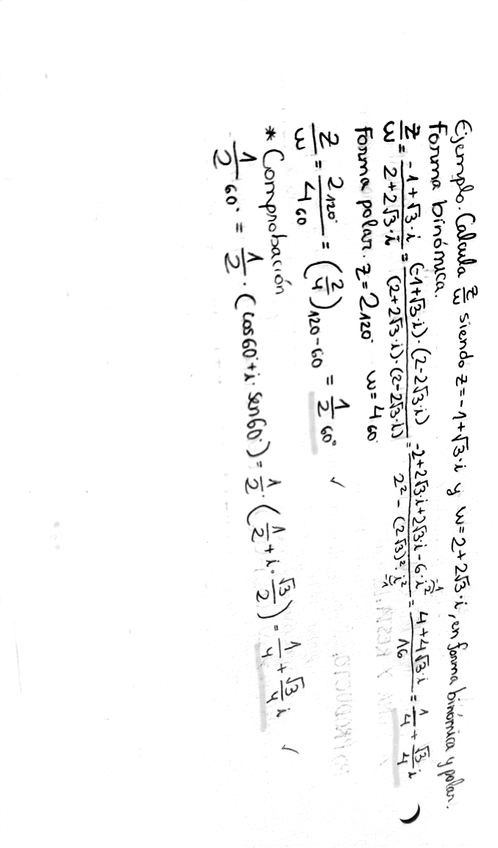 Ejemplo. Calcula z/w siendo z=-1+√3·i y w=2+2√3·i, en forma binómica y polar.
Forma binómica.
z/w = (-1+√3·i)/(2+2√3·i) = ((-1+√3·i)·(2-2√3·i))/((2+2√3·i)·(2-2√3·i)) = (-2+2√3·i+2√3·i-6·i²)/(2²-(2√3)²·i²) = (4+4√3·i)/16 = 1/4 + √3/4 i
Forma polar. z=2₁₂₀° w=4₆₀°
z/w = 2₁₂₀°/4₆₀ = (2/4)₁₂₀₋₆₀ = 1/2 ₆₀° ✓
* Comprobación
1/2 ₆₀° = 1/2 · (cos60°+i·sen60°) = 1/2 · (1/2 + i·√3/2) = 1/4 + √3/4 i ✓